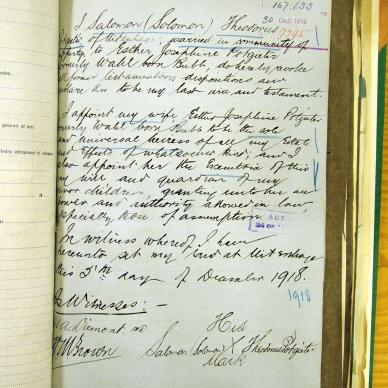 167.633
30 DEC 1918
7795
I Salomon (Solomon) Theodorus
Potgieter of married in community of
property to Esther Josephine Potgieter
formerly Wahl born Bubb do hereby revoke
all former testamentary dispositions and
declare this to be my last will and testament.
I appoint my wife Esther Josephine Potgieter
formerly Wahl born Bubb to be the sole
and universal heiress of all my Estate
and Effects of whatsoever kind, and I
also appoint her the Executrix of this
my will and guardian of my
minor children, granting unto her all
power and authority allowed in law,
especially those of assumption.
ACT
In witness whereof I have
hereunto set my hand at
this 5th day of December 1918.
1918
As Witnesses: -
His
Salomon (Solomon) X Theodorus Potgieter
Mark
Brown